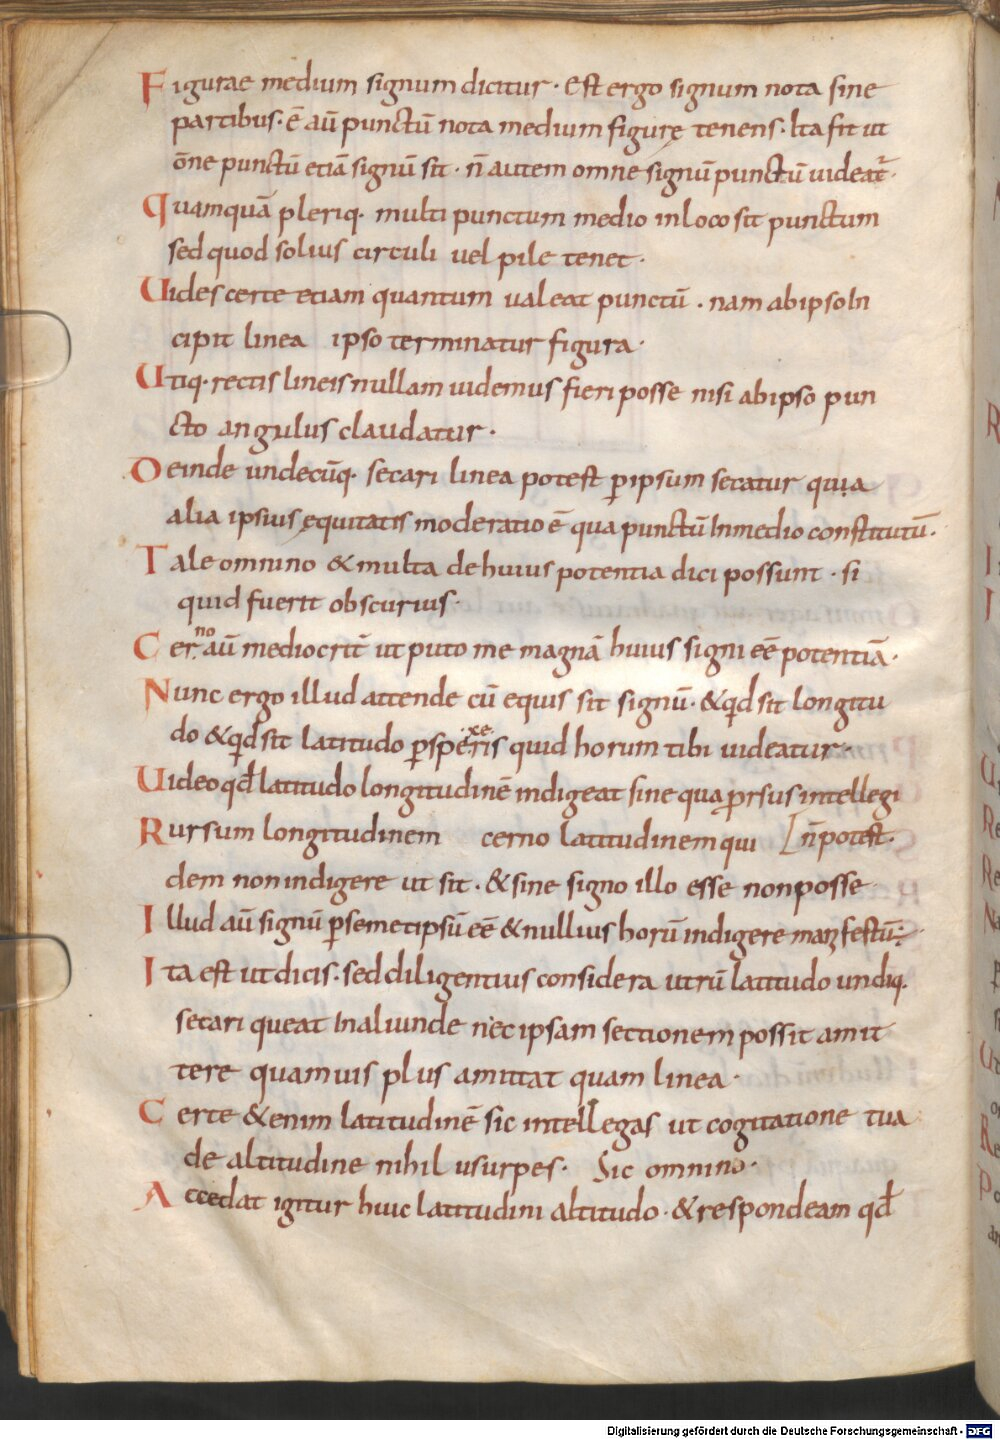 Figurae medium signum dicitur · Est ergo signum nota sine
partibus· ē aū punctū nota medium figurę tenens· Ita fit ut
ōne punctū etiā signū sit · n̄ autem omne signū punctū uideat̄·
Quamquā pleriq· multi punctum medio inloco sit punctum
sed quod solius circuli uel pile tenet·
Uides certe etiam quantum ualeat punctū · nam abipso In
cipit linea ipso terminatur figura·
Utiq· rectis lineis nullam uidemus fieri posse nisi abipso pun
cto angulus claudatur·
Deinde undecūq· secari linea potest ꝑipsum secatur quia
alia ipsius ęquitatis moderatio ē qua punctū Inmedio constitutū·
Tale omnino & multa dehuius potentia dici possunt · si
quid fuerit obscurius·
Cerno aū mediocrit̄ ut puto me magnā huius signi eē potentiā·
Nunc ergo illud attende cū equus sit signū· & qđ sit longitu
do & qđ sit latitudo ꝑspexeris quid horum tibi uideatur·
Uideo qđ latitudo longitudinē indigeat sine qua prorsus intellegi
Rursum longitudinem cerno latitudinem qui n̄ potest·
dem non indigere ut sit · & sine signo illo esse nonposse
Illud aū signū ꝑsemetipsū eē & nullius horū indigere manifestū·
Ita est ut dicis· sed diligentius considera utrū latitudo undiq·
secari queat Inaliunde nec ipsam sectionem possit amit
tere quamuis plus amittat quam linea·
Certe & enim latitudinē sic intellegas ut cogitatione tua
de altitudine nihil usurpes· Sic omnino·
Accedat igitur huic latitudini altitudo· & respondeam qđ
Digitalisierung gefördert durch die Deutsche Forschungsgemeinschaft - DFG